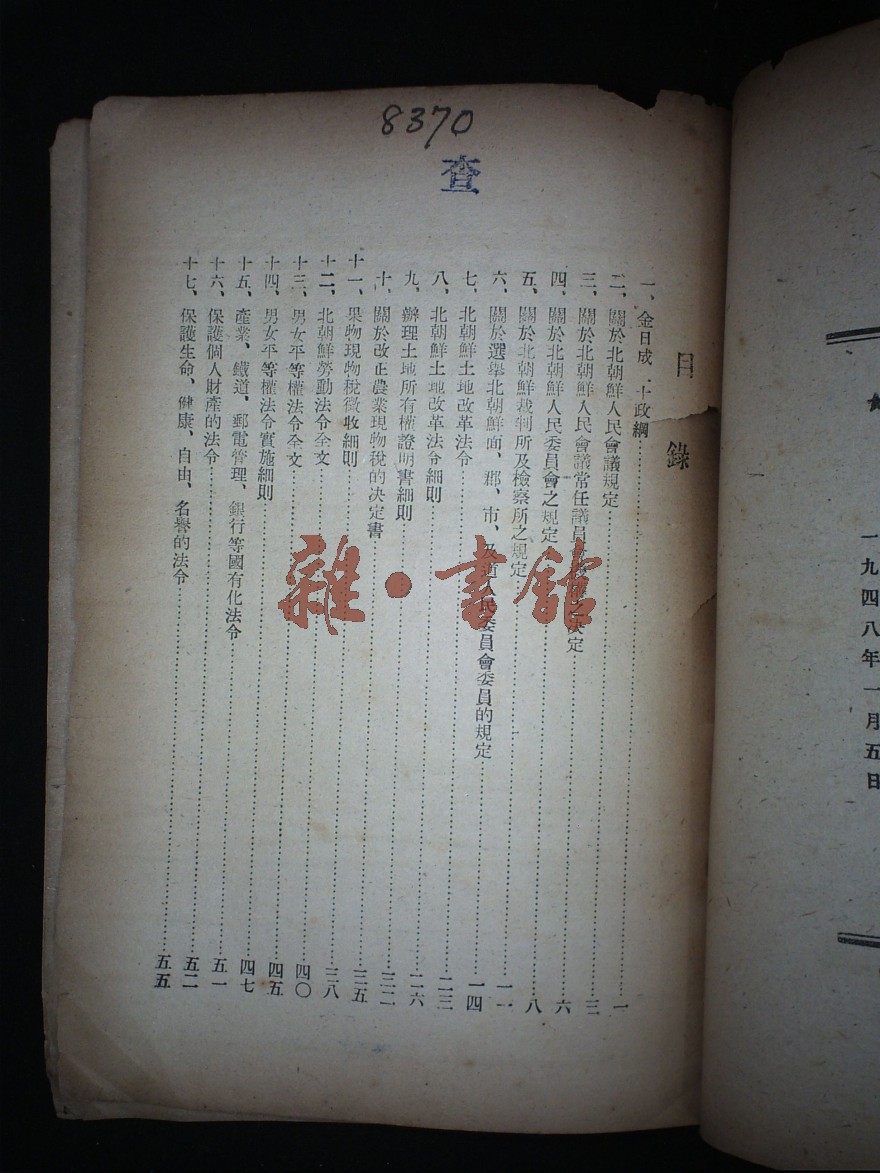 一九四八年一月五日
8370
查
目錄
一、金日成 十政綱……一
二、關於北朝鮮人民會議規定……三
三、關於北朝鮮人民會議常任議員 之決定……六
四、關於北朝鮮人民委員會之規定……八
五、關於北朝鮮裁判所及檢察所之規定……一一
六、關於選舉北朝鮮面、郡、市、及道人民委員會委員的規定……一四
七、北朝鮮土地改革法令……二三
八、北朝鮮土地改革法令細則……二六
九、辦理土地所有權證明書細則……三二
十、關於改正農業現物稅的決定書……三五
十一、果物現物稅徵收細則……三八
十二、北朝鮮勞動法令全文……四〇
十三、男女平等權法令全文……四五
十四、男女平等權法令實施細則……四七
十五、產業、鐵道、郵電管理、銀行等國有化法令……五一
十六、保護個人財產的法令……五二
十七、保護生命、健康、自由、名譽的法令……五五
雜·書館